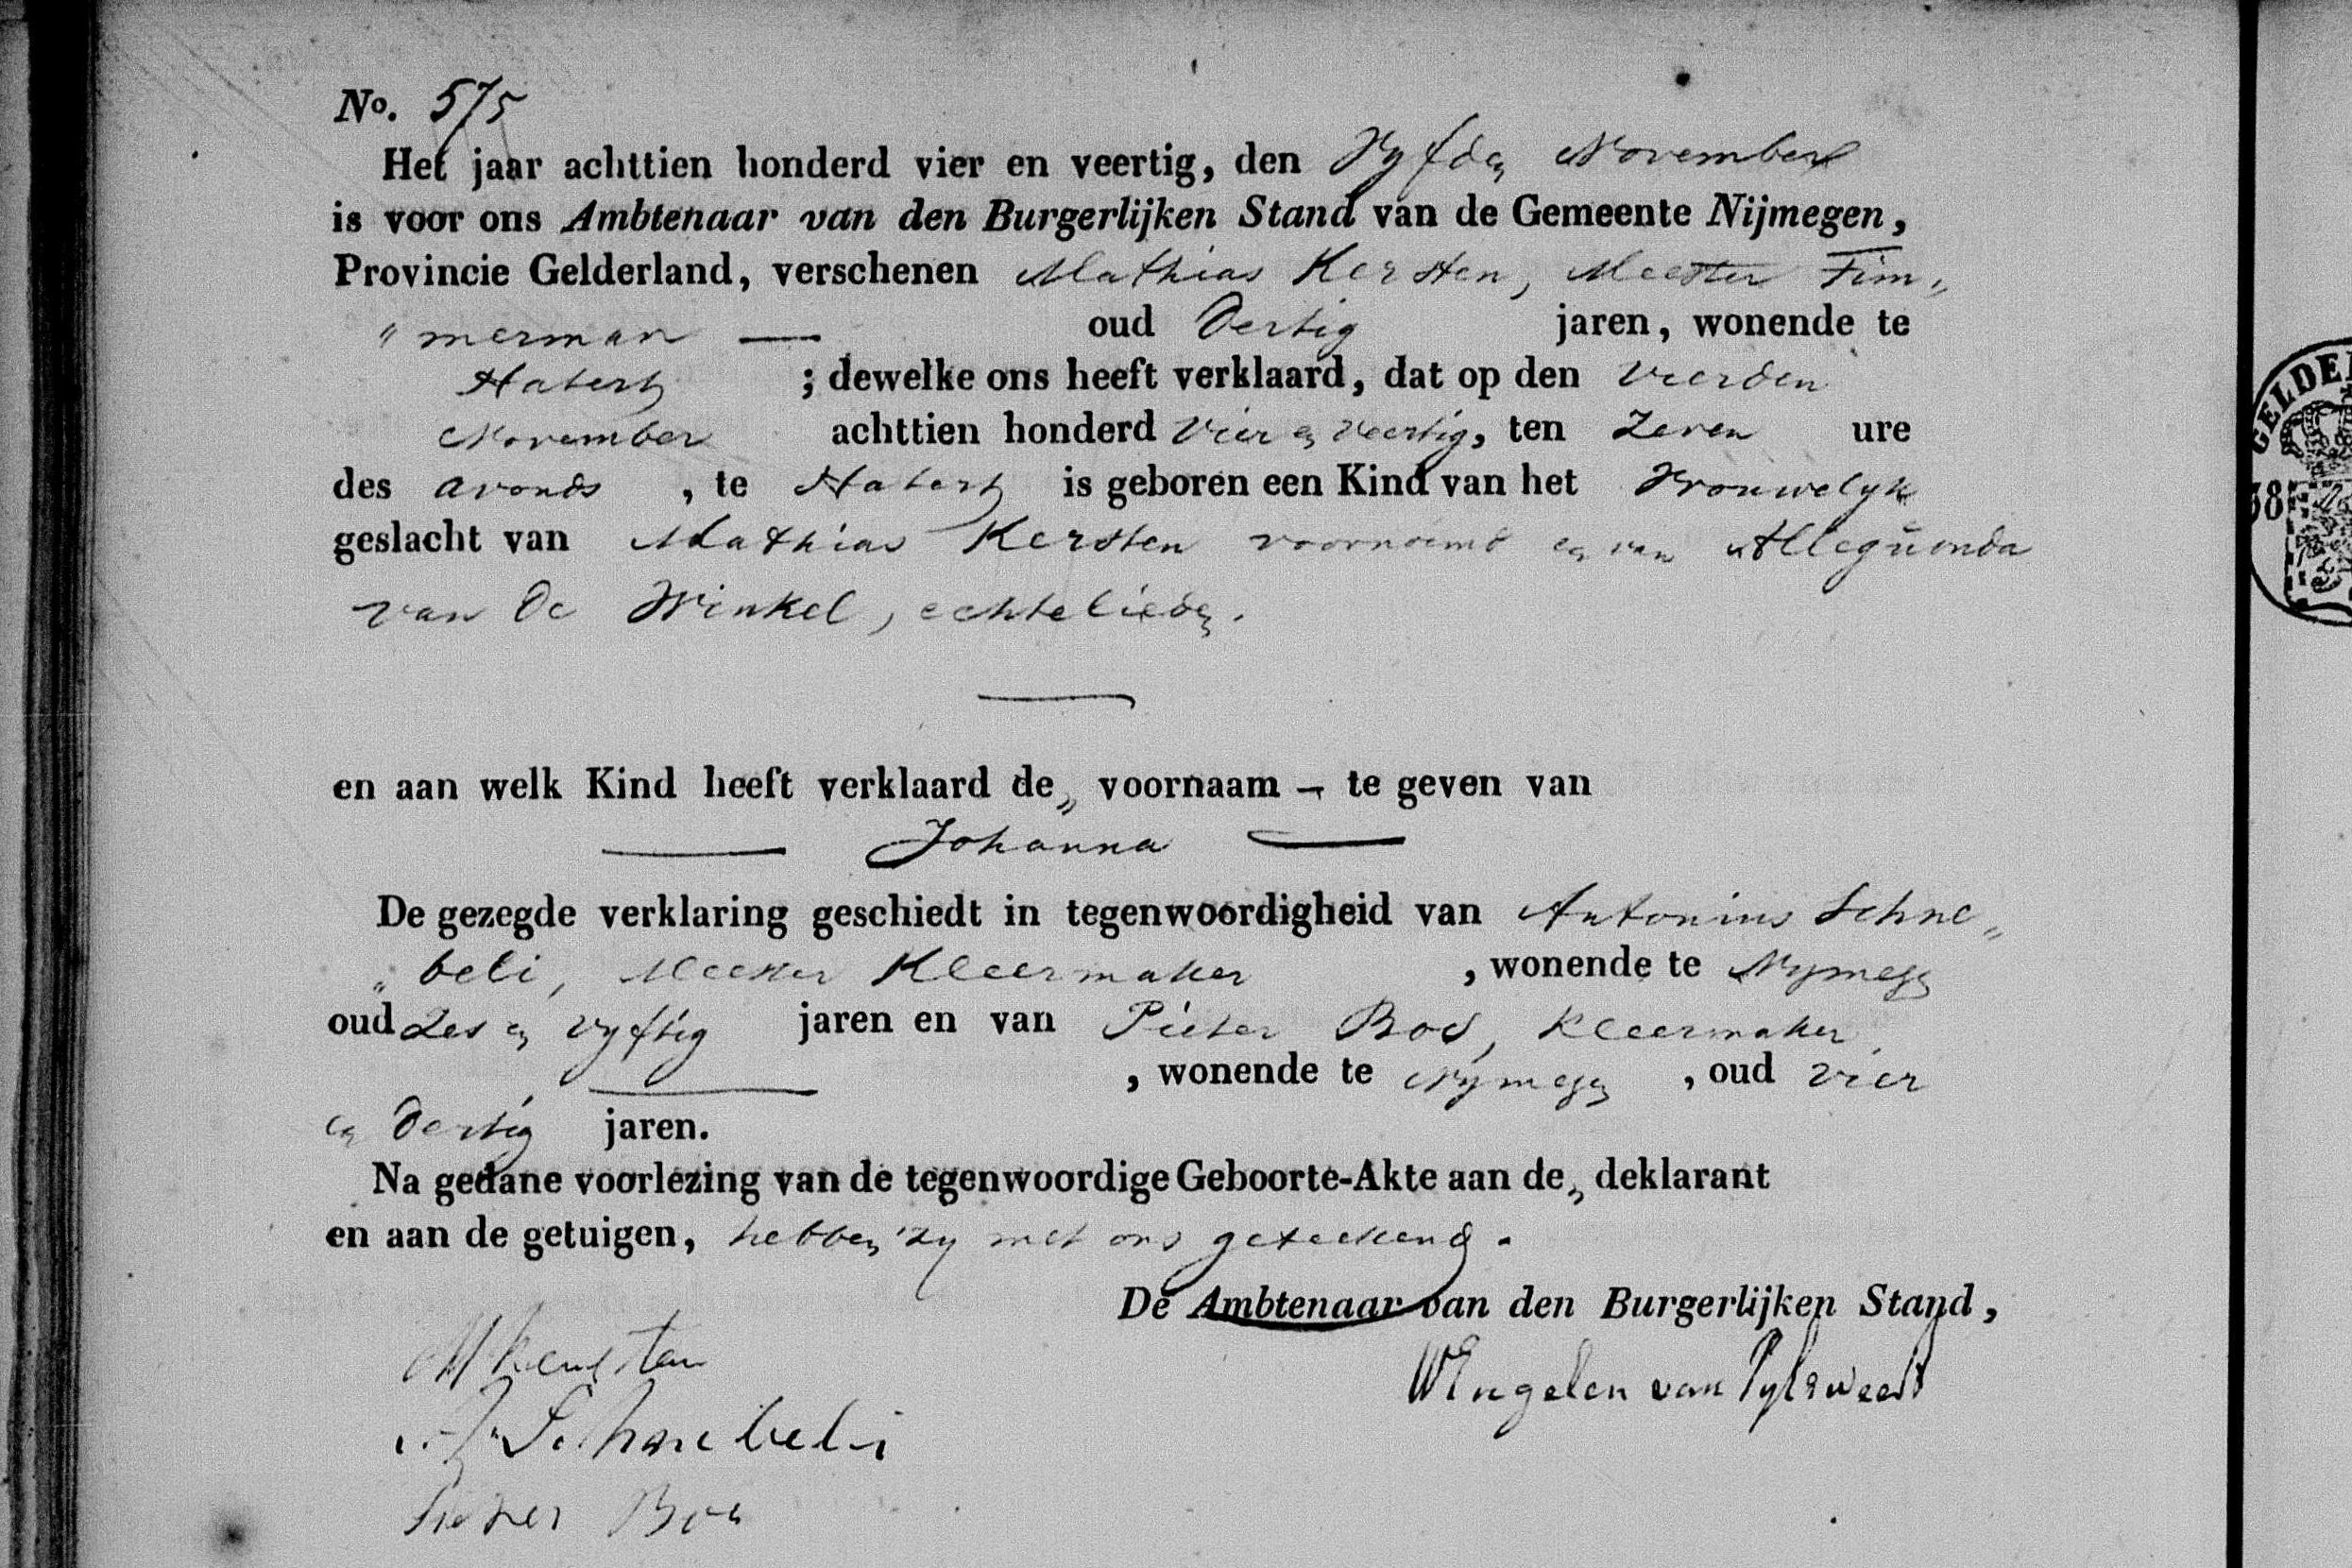 No. 575
Het jaar achttien honderd vier en veertig, den Vyfden November
is voor ons Ambtenaar van den Burgerlijken Stand van de Gemeente Nijmegen,
Provincie Gelderland, verschenen Mathias Kersten, Meester Tim„
„merman — oud dertig jaren, wonende te
Hatert ; dewelke ons heeft verklaard, dat op den vierden
November achttien honderd vier en veertig, ten zeven ure
des avonds , te Hatert is geboren een Kind van het Vrouwelyk
geslacht van Mathias Kersten voornoemd en van Allegŭnda
van de Winkel, echtelieden.
en aan welk Kind heeft verklaard de„ voornaam — te geven van
— Johanna —
De gezegde verklaring geschiedt in tegenwoordigheid van Antonius Schne„
„beli, Meester Kleermaker , wonende te Nymegen
oud Zes en vyftig jaren en van Pieter Bos, Kleermaker,
— , wonende te Nymegen , oud vier
en dertig jaren.
Na gedane voorlezing van de tegenwoordige Geboorte-Akte aan de„ deklarant
en aan de getuigen, hebben zy met ons geteekend.
De Ambtenaar van den Burgerlijken Stand,
M Kersten
WEngelen van Pylsweert
A. Schnebeli
Pieter Bos
GELDE
38